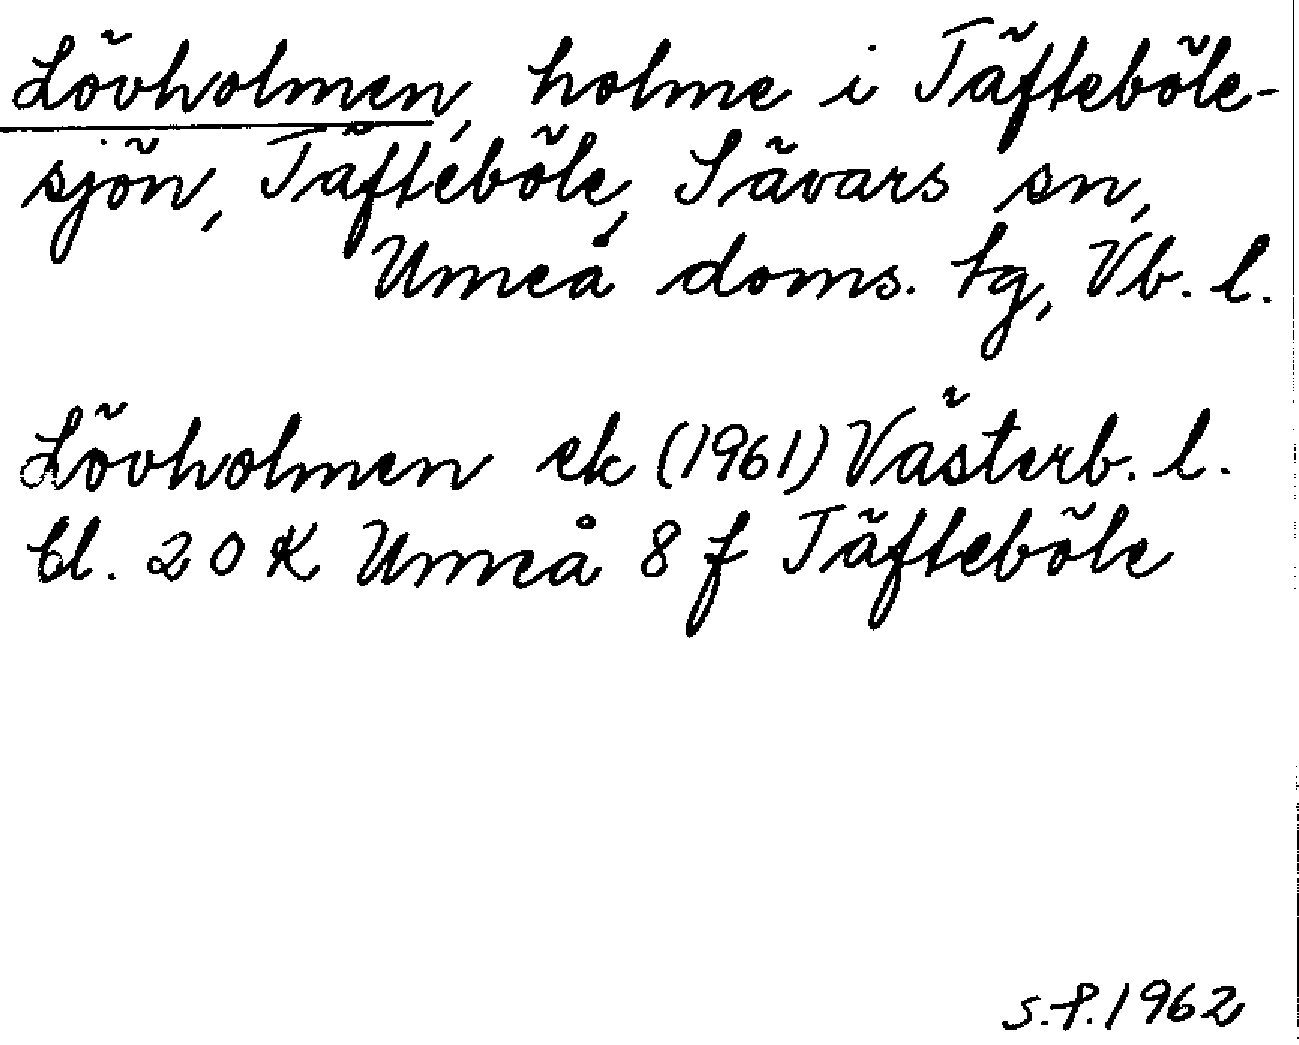 Lövholmen, holme i Täfteböle-
sjön, Täfteböle, Sävars sn,
Umeå doms. tg, Vb. l.
Lövholmen ek (1961) Västerb. l.
bl. 20 K Umeå 8 f Täfteböle
s.f. 1962